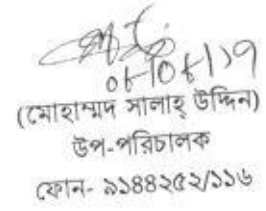 (মোহাম্মদ সালাহ্ উদ্দিন)
উপ-পরিচালক
ফোন- ৯১৪৪২৫২/১১৬